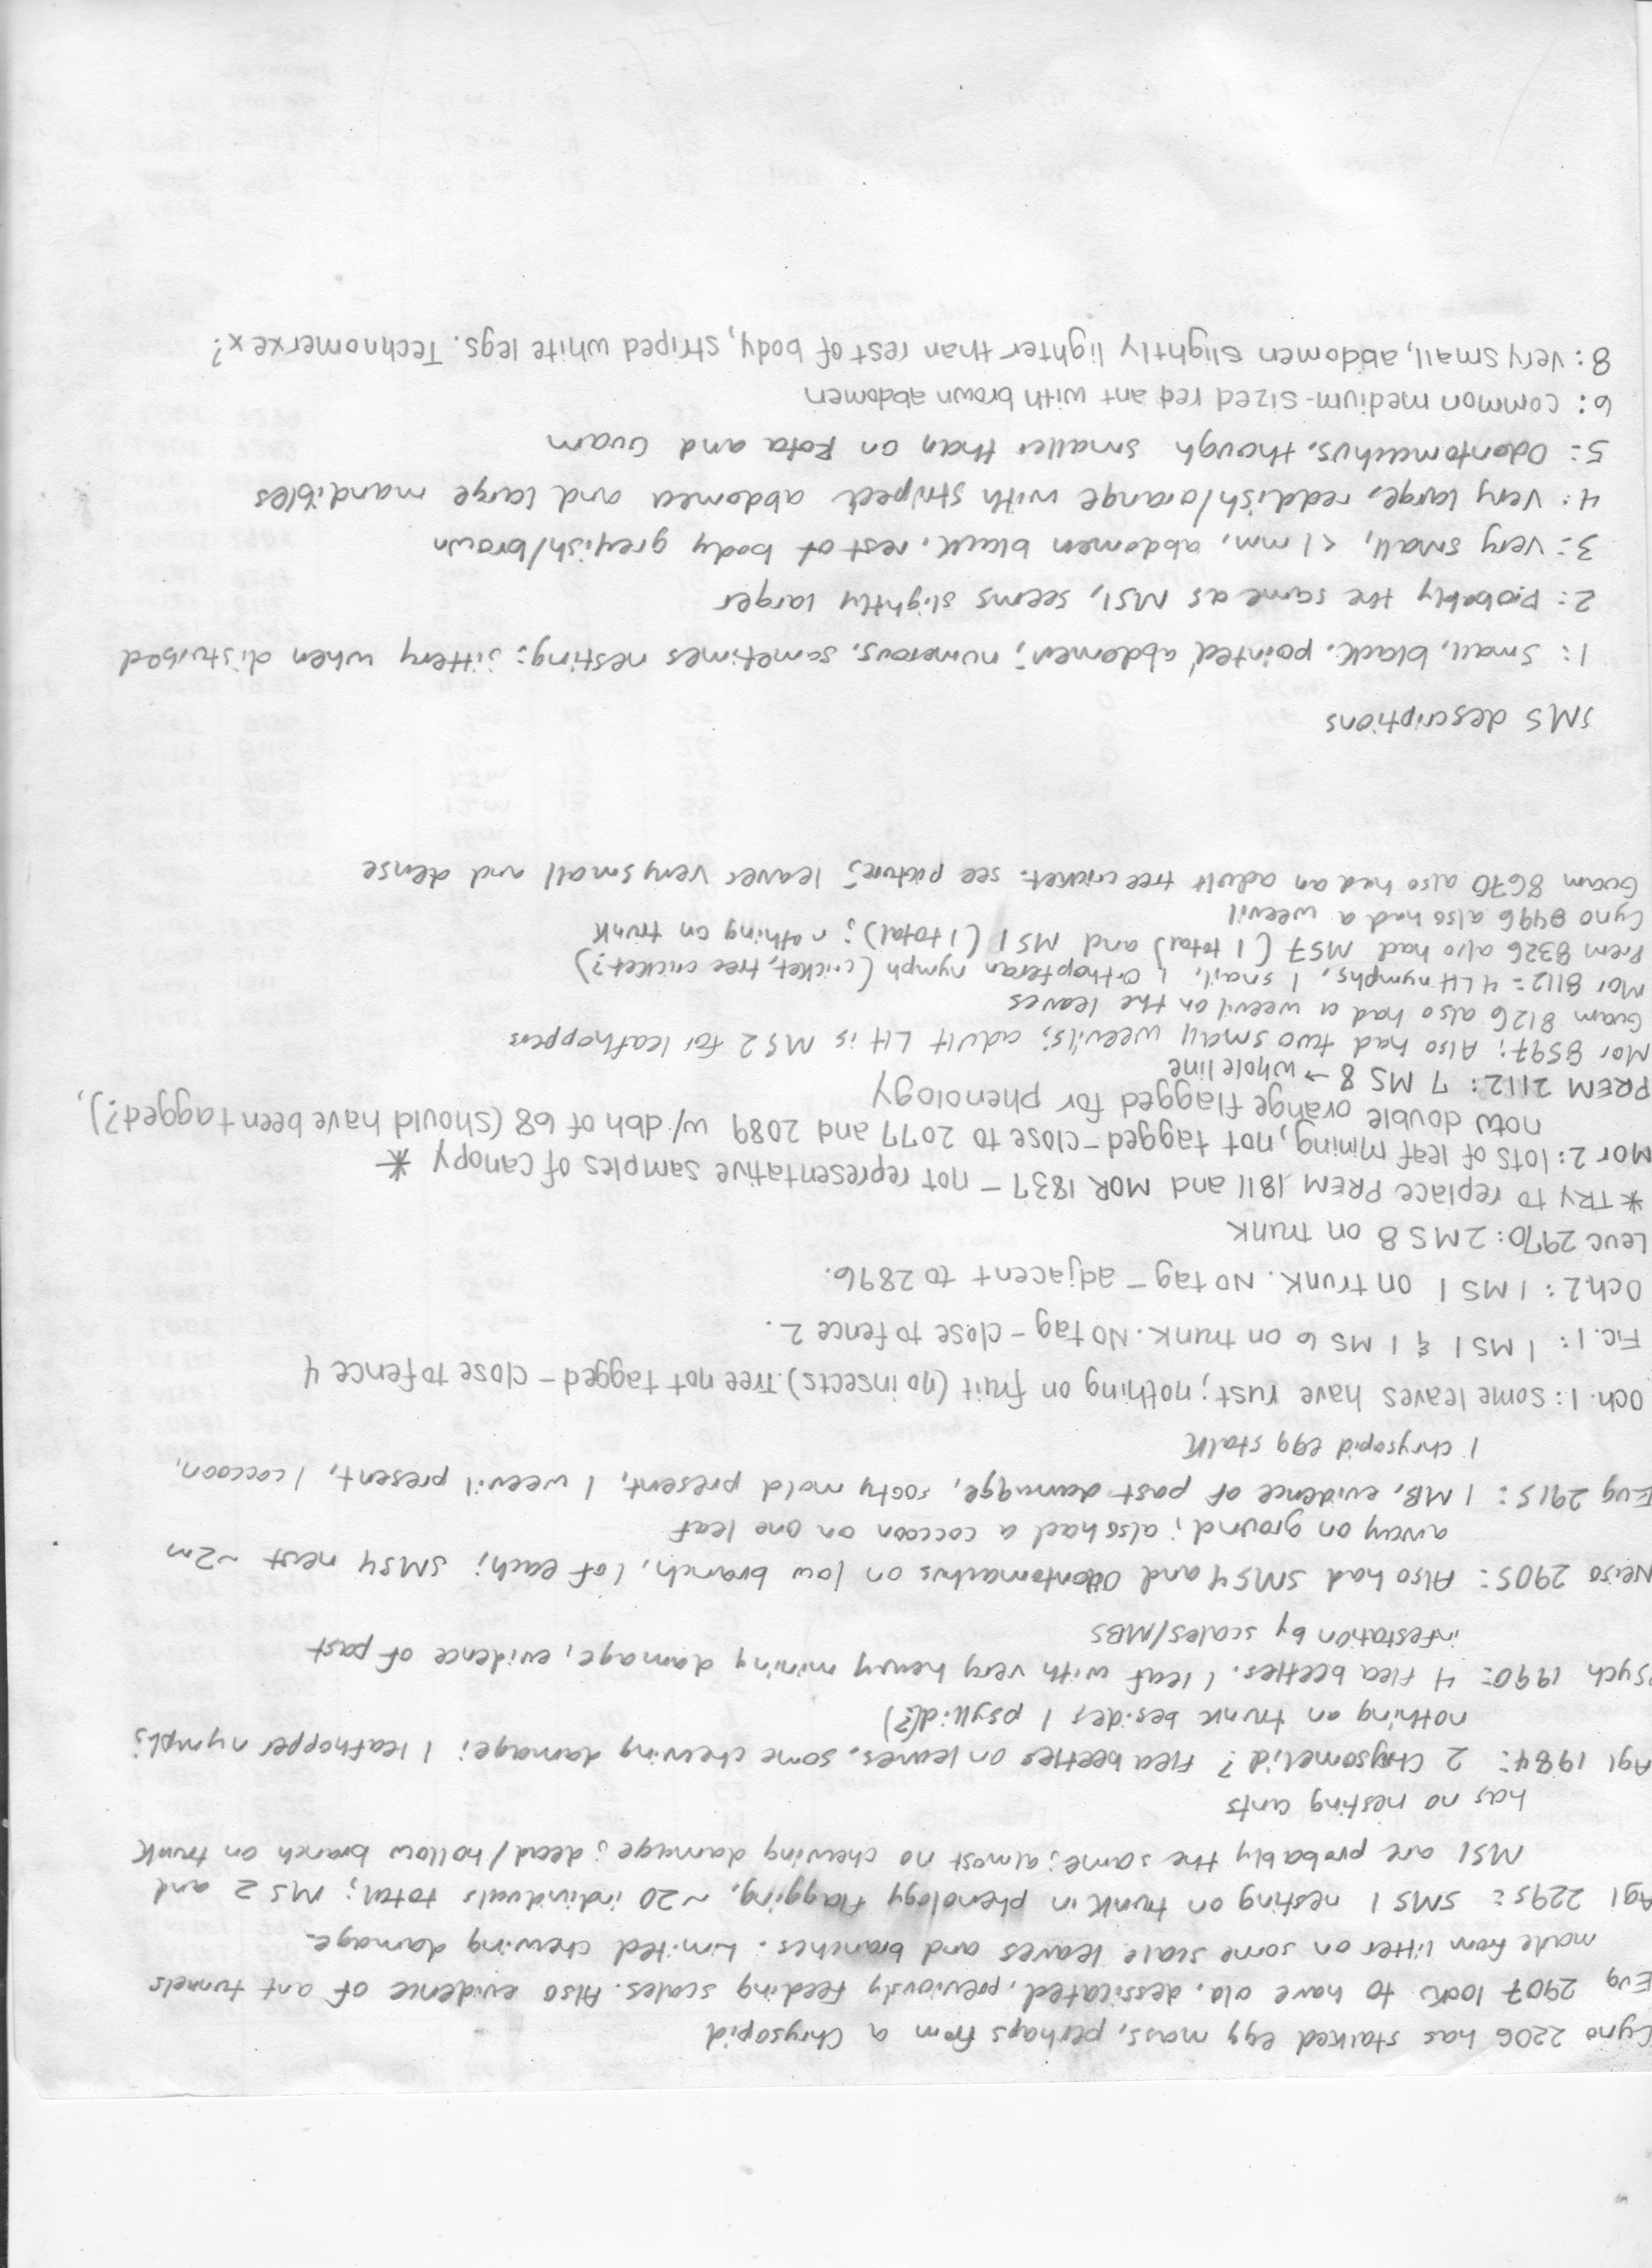 Cyno 2206 has stalked egg mass, perhaps from a Chrysopid
Eug 2907 looks to have old, dessicated, previously feeding scales. Also evidence of ant tunnels
made from litter on some scale leaves and branches. Limited chewing damage.
Agl 2295: SMS 1 nesting on trunk in phenology flagging, ~20 individuals total; MS 2 and
MS1 are probably the same; almost no chewing damage; dead/hollow branch on trunk
has no nesting ants
Agl 1984: 2 Chrysomelid? flea beetles on leaves, some chewing damage; 1 leafhopper nymph;
nothing on trunk besides 1 psyllid(?)
Psych 1990: 4 flea beetles. 1 leaf with very heavy mining damage, evidence of past
infestation by scales/MBS
Neiso 2905: Also had SMS4 and Odontomachus on low branch, 1 of each; SMS4 nest ~2m
away on ground; also had a coccoon on one leaf
Eug 2915: 1 MB, evidence of past damage, sooty mold present, 1 weevil present, 1 coccoon,
1 chrysopid egg stalk
Och. 1: some leaves have rust; nothing on fruit (no insects). Tree not tagged - close to fence 4
Fic. 1: 1 MS 1 & 1 MS 6 on trunk. No tag - close to fence 2.
Och2: 1 MS 1 on trunk. No tag - adjacent to 2896.
Leuc 2970: 2 MS 8 on trunk
*TRY to replace PREM 1811 and MOR 1837 - not representative samples of canopy *
Mor 2: lots of leaf mining, not tagged - close to 2077 and 2089 w/ dbh of 68 (should have been tagged?),
now double orange flagged for phenology
PREM 2112: 7 MS 8 → whole line
Mor 8597: Also had two small weevils; adult LH is MS2 for leafhoppers
Guam 8126 also had a weevil on the leaves
Mor 8112: 4 LH nymphs, 1 snail, 1 Orthopteran nymph (cricket, tree cricket?)
Prem 8326 also had MS7 (1 total) and MS1 (1 total); nothing on trunk
Cyno 8496 also had a weevil
Guam 8670 also had an adult tree cricket. see picture; leaves very small and dense
SMS descriptions
1: Small, black, pointed abdomen; numerous, sometimes nesting; jittery when distrubed
2: Probably the same as MS1, seems slightly larger
3: Very small, <1mm, abdomen black, rest of body greyish/brown
4: Very large, reddish/orange with striped abdomen and large mandibles
5: Odontomachus, though smaller than on Rota and Guam
6: common medium-sized red ant with brown abdomen
8: very small, abdomen slightly lighter than rest of body, striped white legs. Technomerxex?